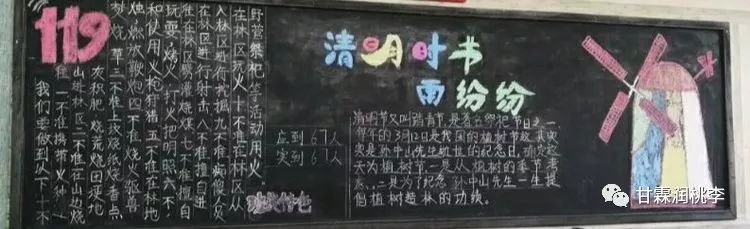 119
我们要做到以下十不
准一不准携带火种
山进林区二不准在山边烧
灰积肥烧荒烧田便地
烧草三不准上坟烧纸烧香点
烛燃放鞭炮四不准烧火驱兽
和使用火枪狩猎五不准在林地
玩耍烧火打火把明照六不
准在林区野灌烧煤七不准擅自
在林区进行射击八不准擅自进
入林区进行九不准痴傻人员
在林区玩火十不准在林区从
野营祭祀等活动用火
应到67人
实到61人
清明时书
雨纷纷
清明节又叫踏青节,是祭祀节日之一,
每年的3月12日是我国的植树节故其实
实是孙中山先生逝世的纪念日,确定这
天为植树节一是从植树的季节考
虑,二是为了纪念孙中山先生一生提
倡植树造林的功绩。
甘霖润桃李